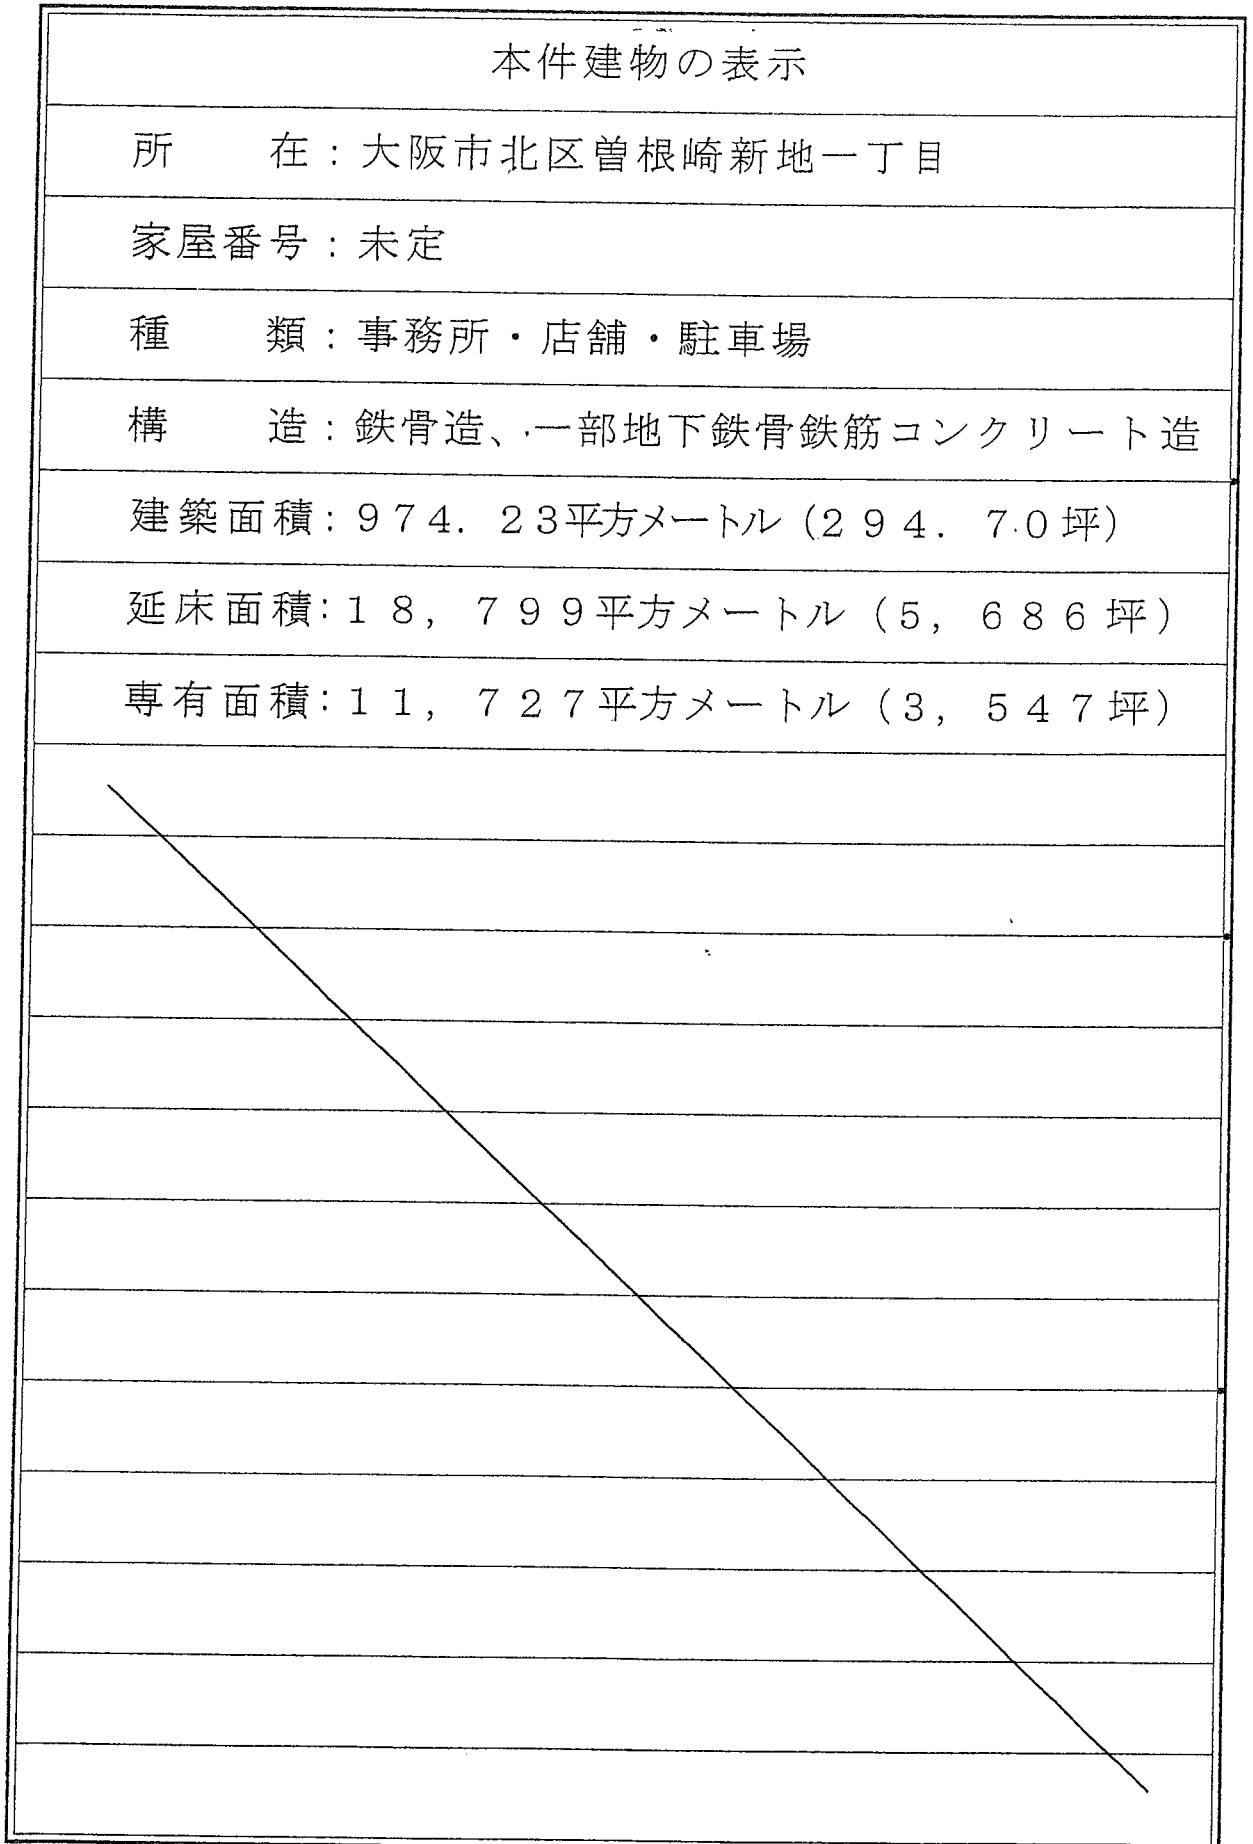 本件建物の表示
所　　在：大阪市北区曽根崎新地一丁目
家屋番号：未定
種　　類：事務所・店舗・駐車場
構　　造：鉄骨造、一部地下鉄骨鉄筋コンクリート造
建築面積：９７４．２３平方メートル（２９４．７０坪）
延床面積：１８，７９９平方メートル（５，６８６坪）
専有面積：１１，７２７平方メートル（３，５４７坪）